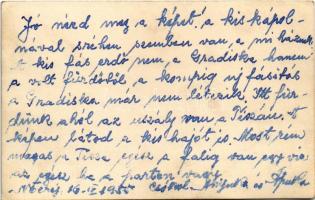 Jó nézd meg a képet! a kis kápol-
nával szélen szemben van a mi házunk
A kis fás erdő nem a Gradiska hanem
a volt fürdőtől a kompig új fásitás
a Gradiska már nem létezik. Itt für-
dünk ahol az uszály van a Tiszán. A
képen látod a kis hajót is. Most ilyen
magas a Tisza egész a falig van egy víz
az egész be a parton vagy.
1955 Csókol Anyuka és Apuka